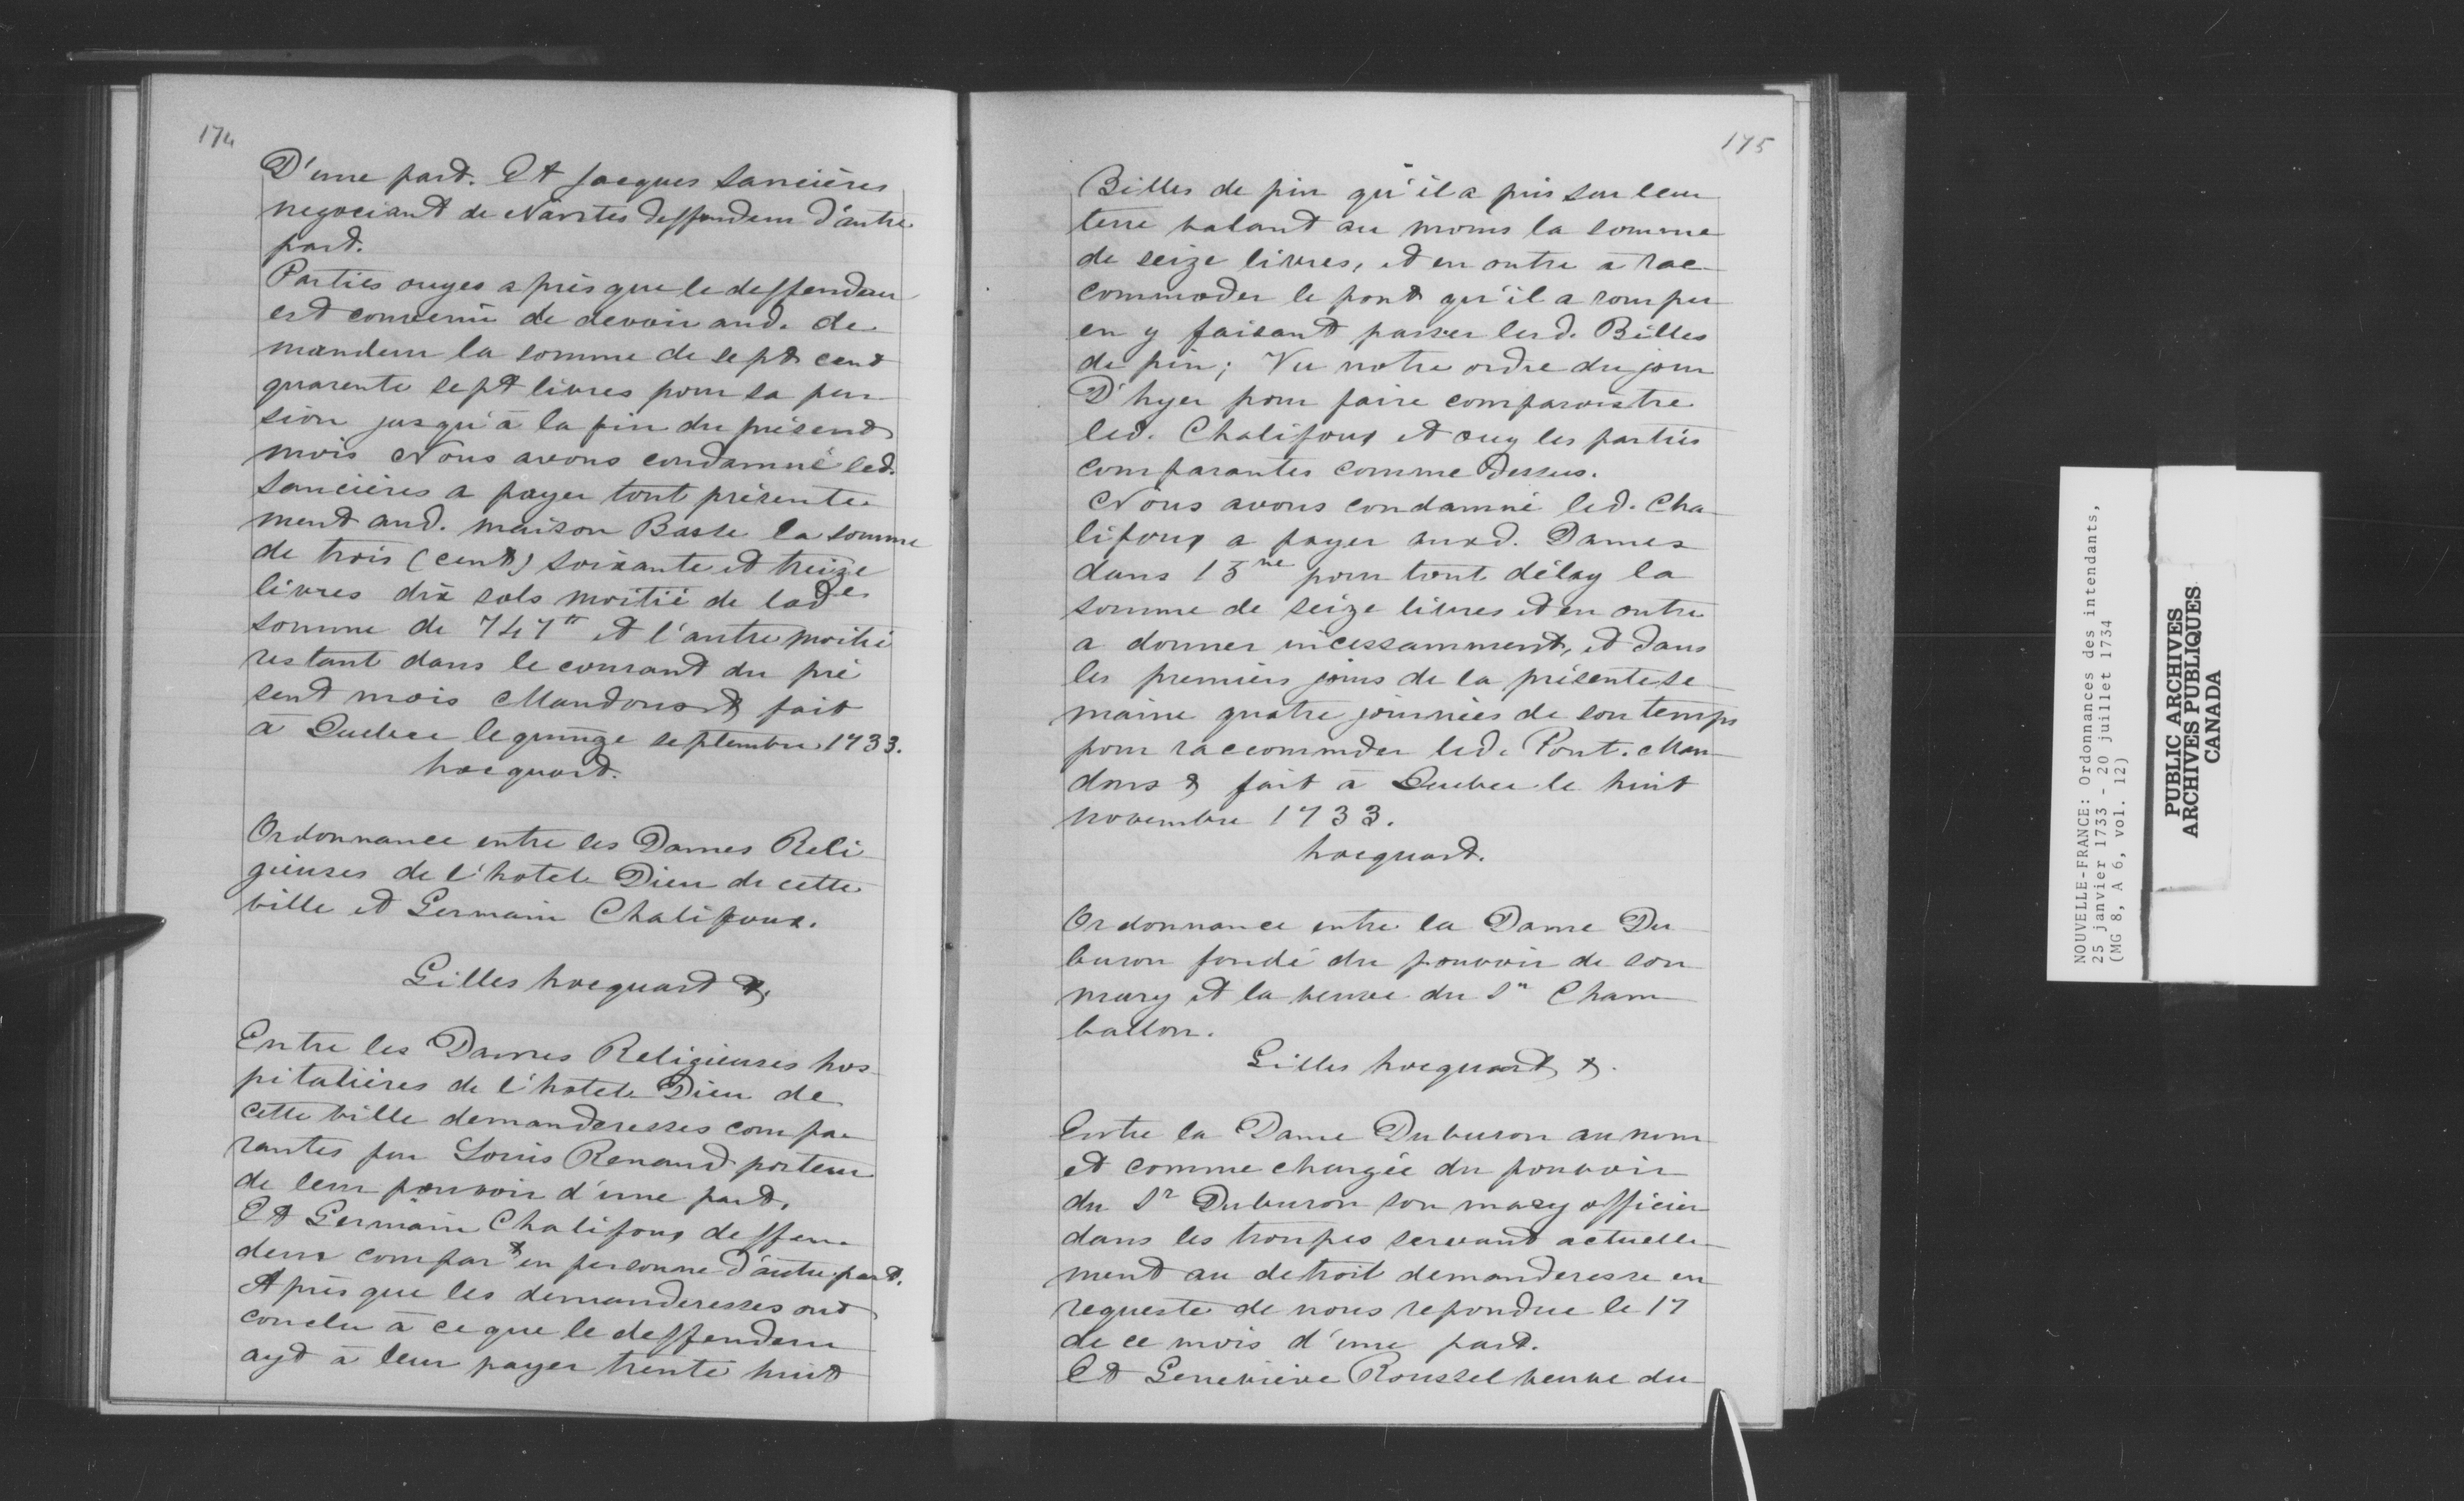 174
D'une part. Et Jacques Sancières
negociant de Nantes deffendeur d'autre
part.
Parties ouyes apres que le deffendeur
est convenu de devoir aud. de
mandeur la somme de sept cent
quarente sept livres pour sa pen
sion jusqu'à la fin du présent
mois Nous avons condamné led.
Sancières a payer tout présente
ment aud. maison Basse la somme
de trois (cent) soixante et treize
livres dix sols moitié de lade
somme de 747tt et l'autre moitié
restant dans le courant du pré
sent mois Mandons & fait
à Quebec le quinze septembre 1733.
hocquart.
Ordonnance entre les Dames Reli
gieuses de l'hotel Dieu de cette
ville et Germain Chalifoux.
Gilles hocquart &
Entre les Dames Religieuses hos
pitalières de l'hotel Dieu de
cette ville demanderesses compa
rantes par Louis Renaud porteur
de leur pouvoir d'une part,
Et Germain Chalifoux deffen
deur compart en personne d'autre part.
Après que les demanderesses ont
conclu à ce que le deffendeur
ayt à leur payer trente huit
175
Billes de pin qu'il a pris sur leur
terre valant au moins la somme
de seize livres, et en outre à rac
commoder le pont qu'il a rompu
en y faisant passer lesd. Billes
de pin; Vu notre ordre du jour
D'hyer pour faire comparoistre
led. Chalifoux et ouy les parties
comparantes comme Dessus.
Nous avons condamné led. Cha
lifoux a payer auxd. Dames
dans 15ne pour tout délay la
somme de seize livres et en outre
a donner incessamment, et dans
les premiers jours de la présente se
maine quatre journées de son temps
pour raccommder led. Pont. Man
dons & fait à Quebec le huit
novembre 1733.
hocquart.
Ordonnance entre la Dame Du
buron fondé du pouvoir de son
mary et la veuve du Sr Cham
ballon.
Gilles hocquart &.
Entre la Dame Duburon au nom
et comme chargée du pouvoir
du Sr Duburon son mary officier
dans les troupes servant actuelle
ment au detroit demanderesse en
requeste de nous repondue le 17
de ce mois d'une part.
Et Geneviève Roussel veuve du
NOUVELLE-FRANCE: Ordonnances des intendants,
25 janvier 1733 - 20 juillet 1734
(MG 8, A 6, vol. 12)
PUBLIC ARCHIVES
ARCHIVES PUBLIQUES
CANADA